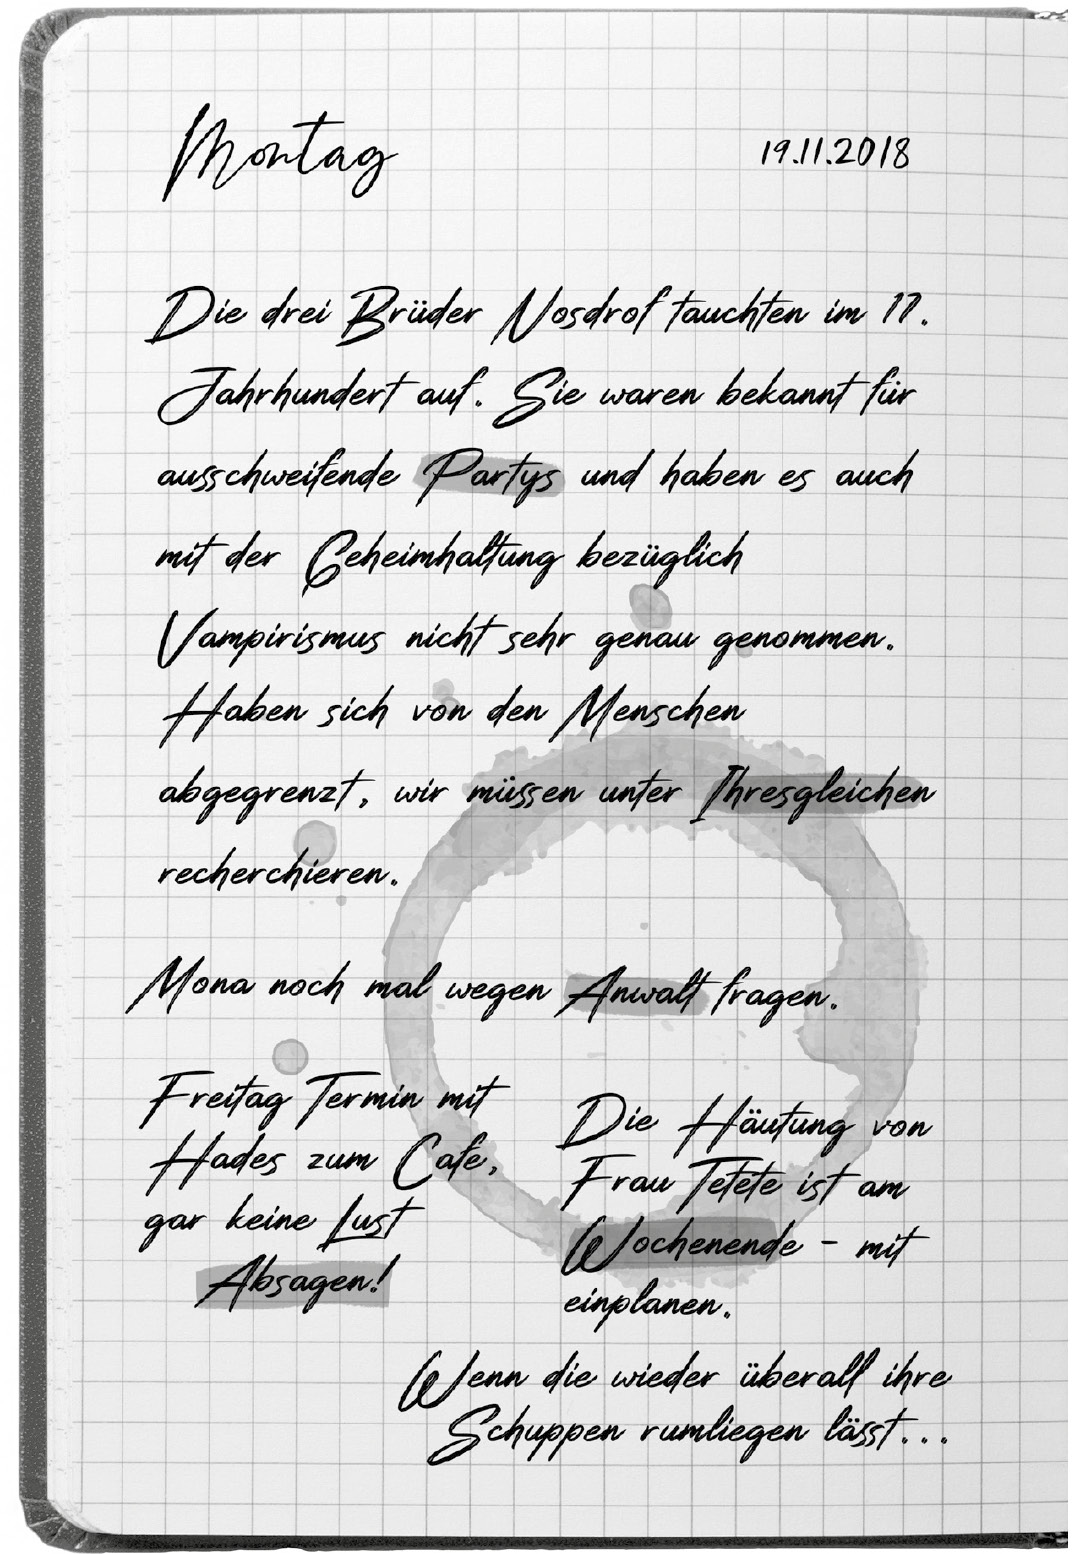 Montag
19.11.2018
Die drei Brüder Nosdrof tauchten im 17.
Jahrhundert auf. Sie waren bekannt für
ausschweifende Partys und haben es auch
mit der Geheimhaltung bezüglich
Vampirismus nicht sehr genau genommen.
Haben sich von den Menschen
abgegrenzt, wir müssen unter Ihresgleichen
recherchieren.
Mona noch mal wegen Anwalt fragen.
Freitag Termin mit
Hades zum Cafe,
gar keine Lust
Absagen!
Die Häutung von
Frau Tetete ist am
Wochenende - mit
einplanen.
Wenn die wieder überall ihre
Schuppen rumliegen lässt...